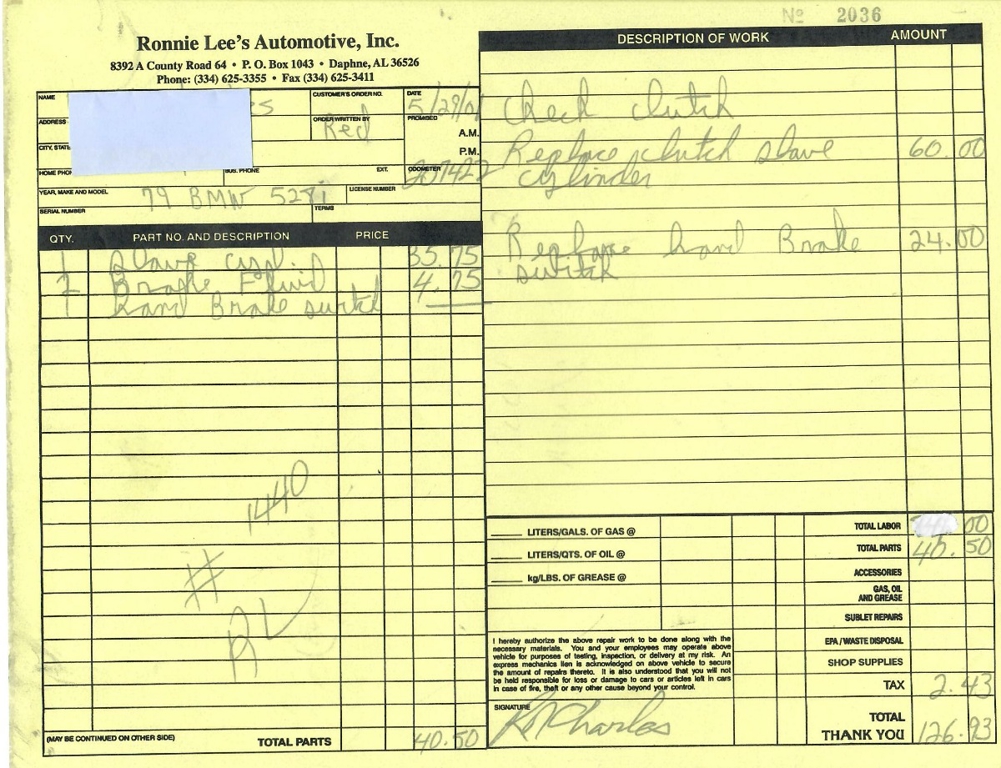 Nº 2036
Ronnie Lee's Automotive, Inc.
8392 A County Road 64 • P. O. Box 1043 • Daphne, AL 36526
Phone: (334) 625-3355 • Fax (334) 625-3411
NAME es
CUSTOMER'S ORDER NO.
DATE 5/29/01
ADDRESS
ORDER WRITTEN BY Red
PROMISED A.M.
P.M.
CITY, STAT
HOME PHO
BUS. PHONE EXT.
ODOMETER 207422
YEAR, MAKE AND MODEL 79 BMW 528i
LICENSE NUMBER
SERIAL NUMBER
TERMS
QTY. PART NO. AND DESCRIPTION PRICE
1 Slave cyl. 35.75
1 Brake Fluid 4.75
1 hand Brake switch
# 1440
RL
(MAY BE CONTINUED ON OTHER SIDE) TOTAL PARTS 40.50
DESCRIPTION OF WORK AMOUNT
Check clutch
Replace clutch slave 60.00
cylinder
Replace hand Brake 24.00
switch
LITERS/GALS. OF GAS @
LITERS/QTS. OF OIL @
kg/LBS. OF GREASE @
TOTAL LABOR 00
TOTAL PARTS 40.50
ACCESSORIES
GAS, OIL
AND GREASE
SUBLET REPAIRS
EPA / WASTE DISPOSAL
SHOP SUPPLIES
TAX 2.43
TOTAL
THANK YOU 126.93
I hereby authorize the above repair work to be done along with the
necessary materials. You and your employees may operate above
vehicle for purposes of testing, inspection, or delivery at my risk. An
express mechanics lien is acknowledged on above vehicle to secure
the amount of repairs thereto. It is also understood that you will not
be held responsible for loss or damage to cars or articles left in cars
in case of fire, theft or any other cause beyond your control.
SIGNATURE